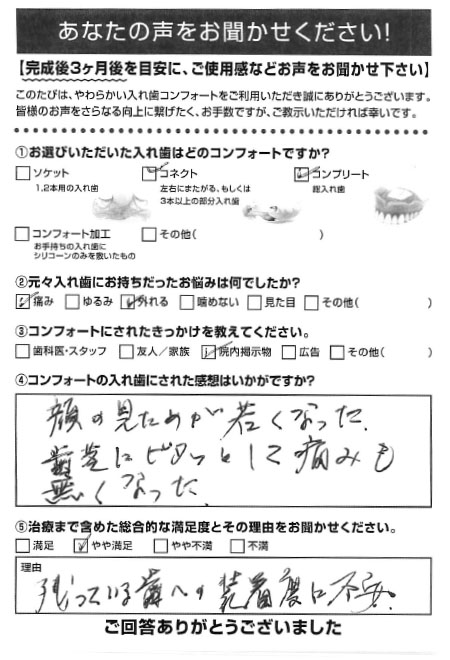 あなたの声をお聞かせください！
【完成後3ヶ月後を目安に、ご使用感などお声をお聞かせ下さい】
このたびは、やわらかい入れ歯コンフォートをご利用いただき誠にありがとうございます。
皆様のお声をさらなる向上に繋げたく、お手数ですが、ご教示いただければ幸いです。
①お選びいただいた入れ歯はどのコンフォートですか？
ソケット
1,2本用の入れ歯
コネクト
左右にまたがる、もしくは
3本以上の部分入れ歯
コンプリート
総入れ歯
コンフォート加工
お手持ちの入れ歯に
シリコーンのみを敷いたもの
その他（　　　）
②元々入れ歯にお持ちだったお悩みは何でしたか？
痛み ゆるみ 外れる 噛めない 見た目 その他（　　　）
③コンフォートにされたきっかけを教えてください。
歯科医・スタッフ 友人／家族 院内掲示物 広告 その他（　　　）
④コンフォートの入れ歯にされた感想はいかがですか？
顔の見ためが若くなった.
歯茎にピタッとして痛みも
無くなった.
⑤治療まで含めた総合的な満足度とその理由をお聞かせください。
満足 やや満足 やや不満 不満
理由
残っている歯への装着度に不安.
ご回答ありがとうございました